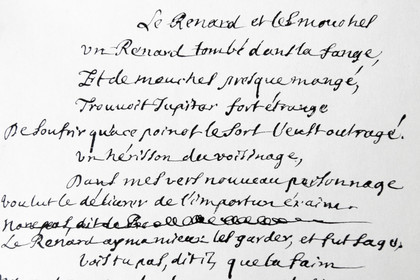 Le Renard et les mouches
un Renard tombé dans la fange,
Et de mouches presque mangé,
Trouvoit Jupiter fort étrange
De soufrir qu'a ce point le sort l'eust outragé.
un hérisson du voisinage,
Dans mes vers nouveau personnage
voulut le délivrer de l'importun éxaim.
Non pas, dit
Le Renard ayma mieux les garder, et fut sage.
Vois tu pas, dit il, que la faim